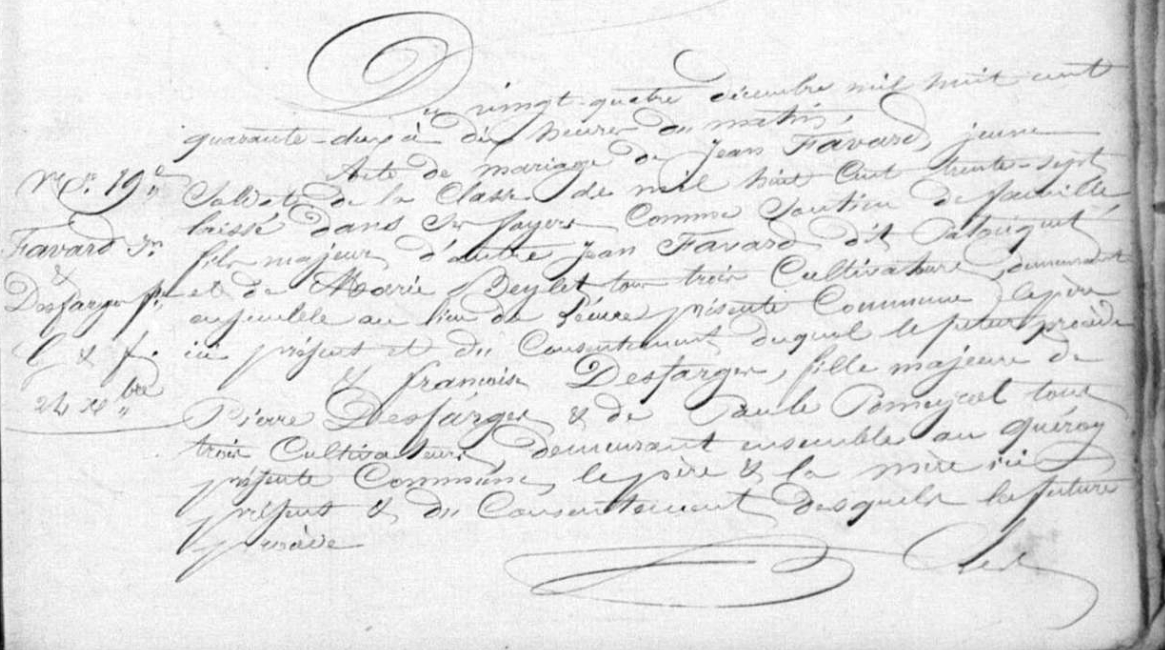 Du vingt-quatre décembre mil huit cent
quarante-deux à dix heures du matin,
Acte de mariage de Jean Favard, jeune
Soldat de la Classe de mil huit Cent trente-sept
laissé dans ses foyers Comme Soutien de famille
fils majeur d'autre Jean Favard dit
et de Marie Beylet tous trois Cultivateurs, demeurant
ensemble au lieu de présente Commune, le père
ici présent et du Consentement duquel le futur procède
& françoise Desfarges, fille majeure de
Pierre Desfarges & de Paule tous
trois Cultivateurs, demeurant ensemble au Quéroy
présente Commune, le père & la mère ici
présents & du Consentement desquels la future
procède
Les
19
Favard Jn
&
Desfarges
24 Xbre